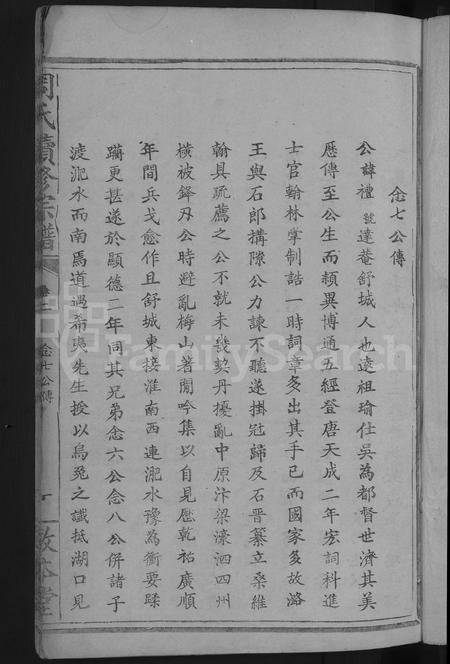 念七公傳
公諱禮號達菴舒城人也遠祖瑜仕吳為都督世濟其美
歷傳至公生而穎異博通五經登唐天成二年宏詞科進
士官翰林掌制誥一時詞章多出其手已而國家多故潞
王與石郎搆隙公力諫不聽遂掛冠歸及石晉纂立桑維
翰具疏薦之公不就未幾契丹擾亂中原汴梁濠泗四州
橫被鋒刃公時避亂梅山著閒吟集以自見歷乾祐廣順
年間兵戈愈作且舒城東接淮南西連淝水豫為衝要蹂
躪更甚遂於顯德二年同其兄弟念六公念八公併諸子
渡淝水而南馬道遇希夷先生授以烏兔之讖抵湖口見
周氏續修宗譜
念七公傳
FamilySearch